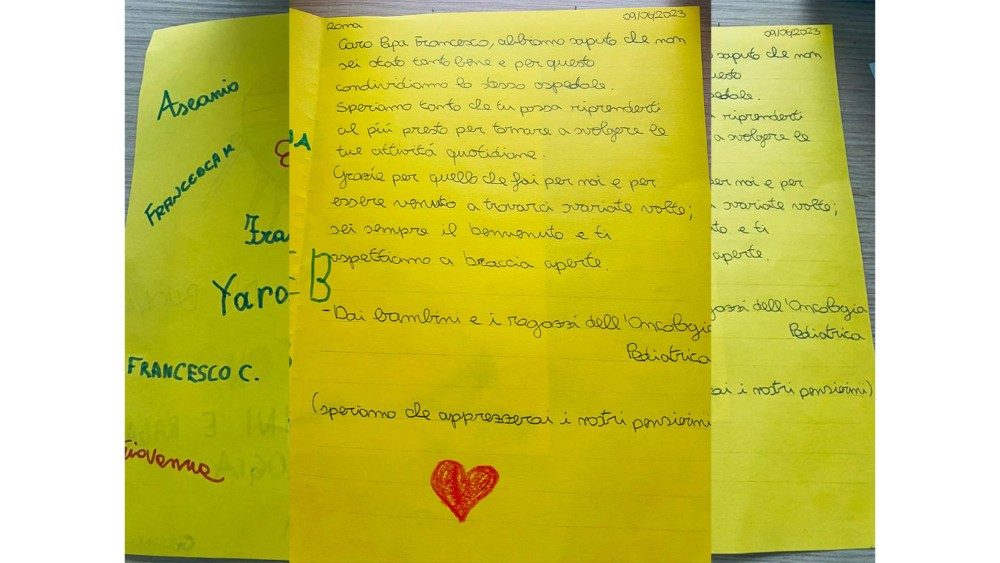 Ascanio
FRANCESCA M
Fra
Yaro
B
FRANCESCO C.
Giovanna
Roma 09/06/2023
Caro Papa Francesco, abbiamo saputo che non
sei stato tanto bene e per questo
condividiamo lo stesso ospedale.
Speriamo tanto che tu possa riprenderti
al più presto per tornare a svolgere le
tue attività quotidiane.
Grazie per quello che fai per noi e per
essere venuto a trovarci svariate volte;
sei sempre il benvenuto e ti
aspettiamo a braccia aperte.
-Dai bambini e i ragazzi dell'Oncologia
Pediatrica
(speriamo che apprezzerai i nostri pensierini
09/06/2023
saputo che non
uesto
pedale.
riprenderti
a svolgere le
per noi e per
svariate volte;
to e ti
aperte.
gazzi dell'Oncologia
Pediatrica
rai i nostri pensierini)